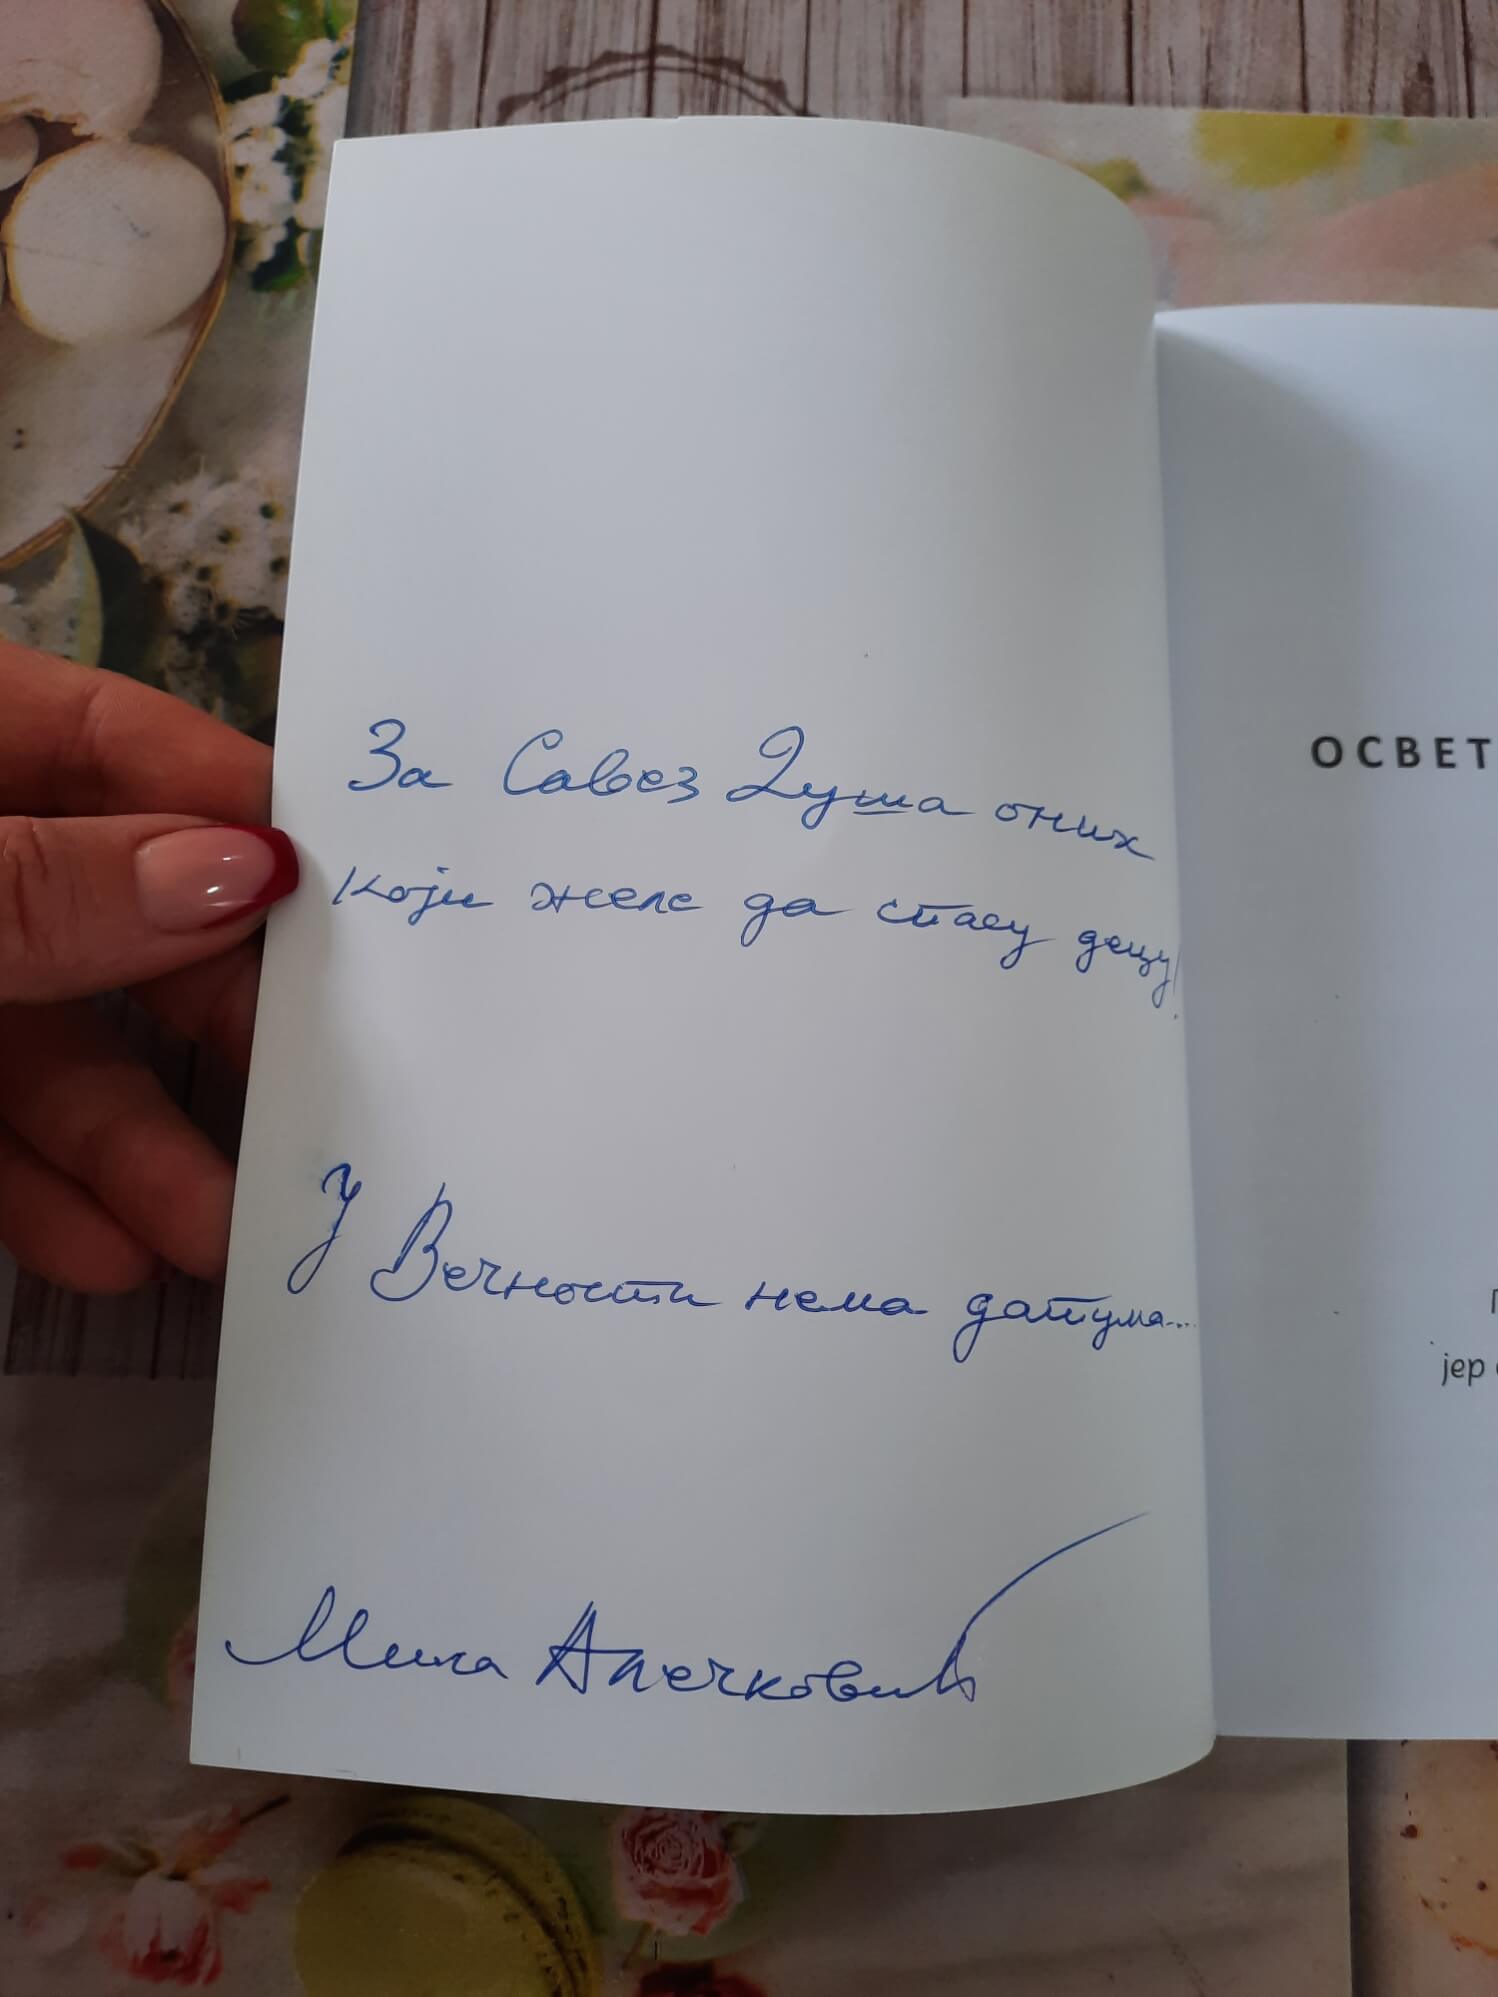 За Савез Душа оних
који желе да спасу децу!
У Вечности нема датума...
Мила Алечковић
ОСВЕТ
јер